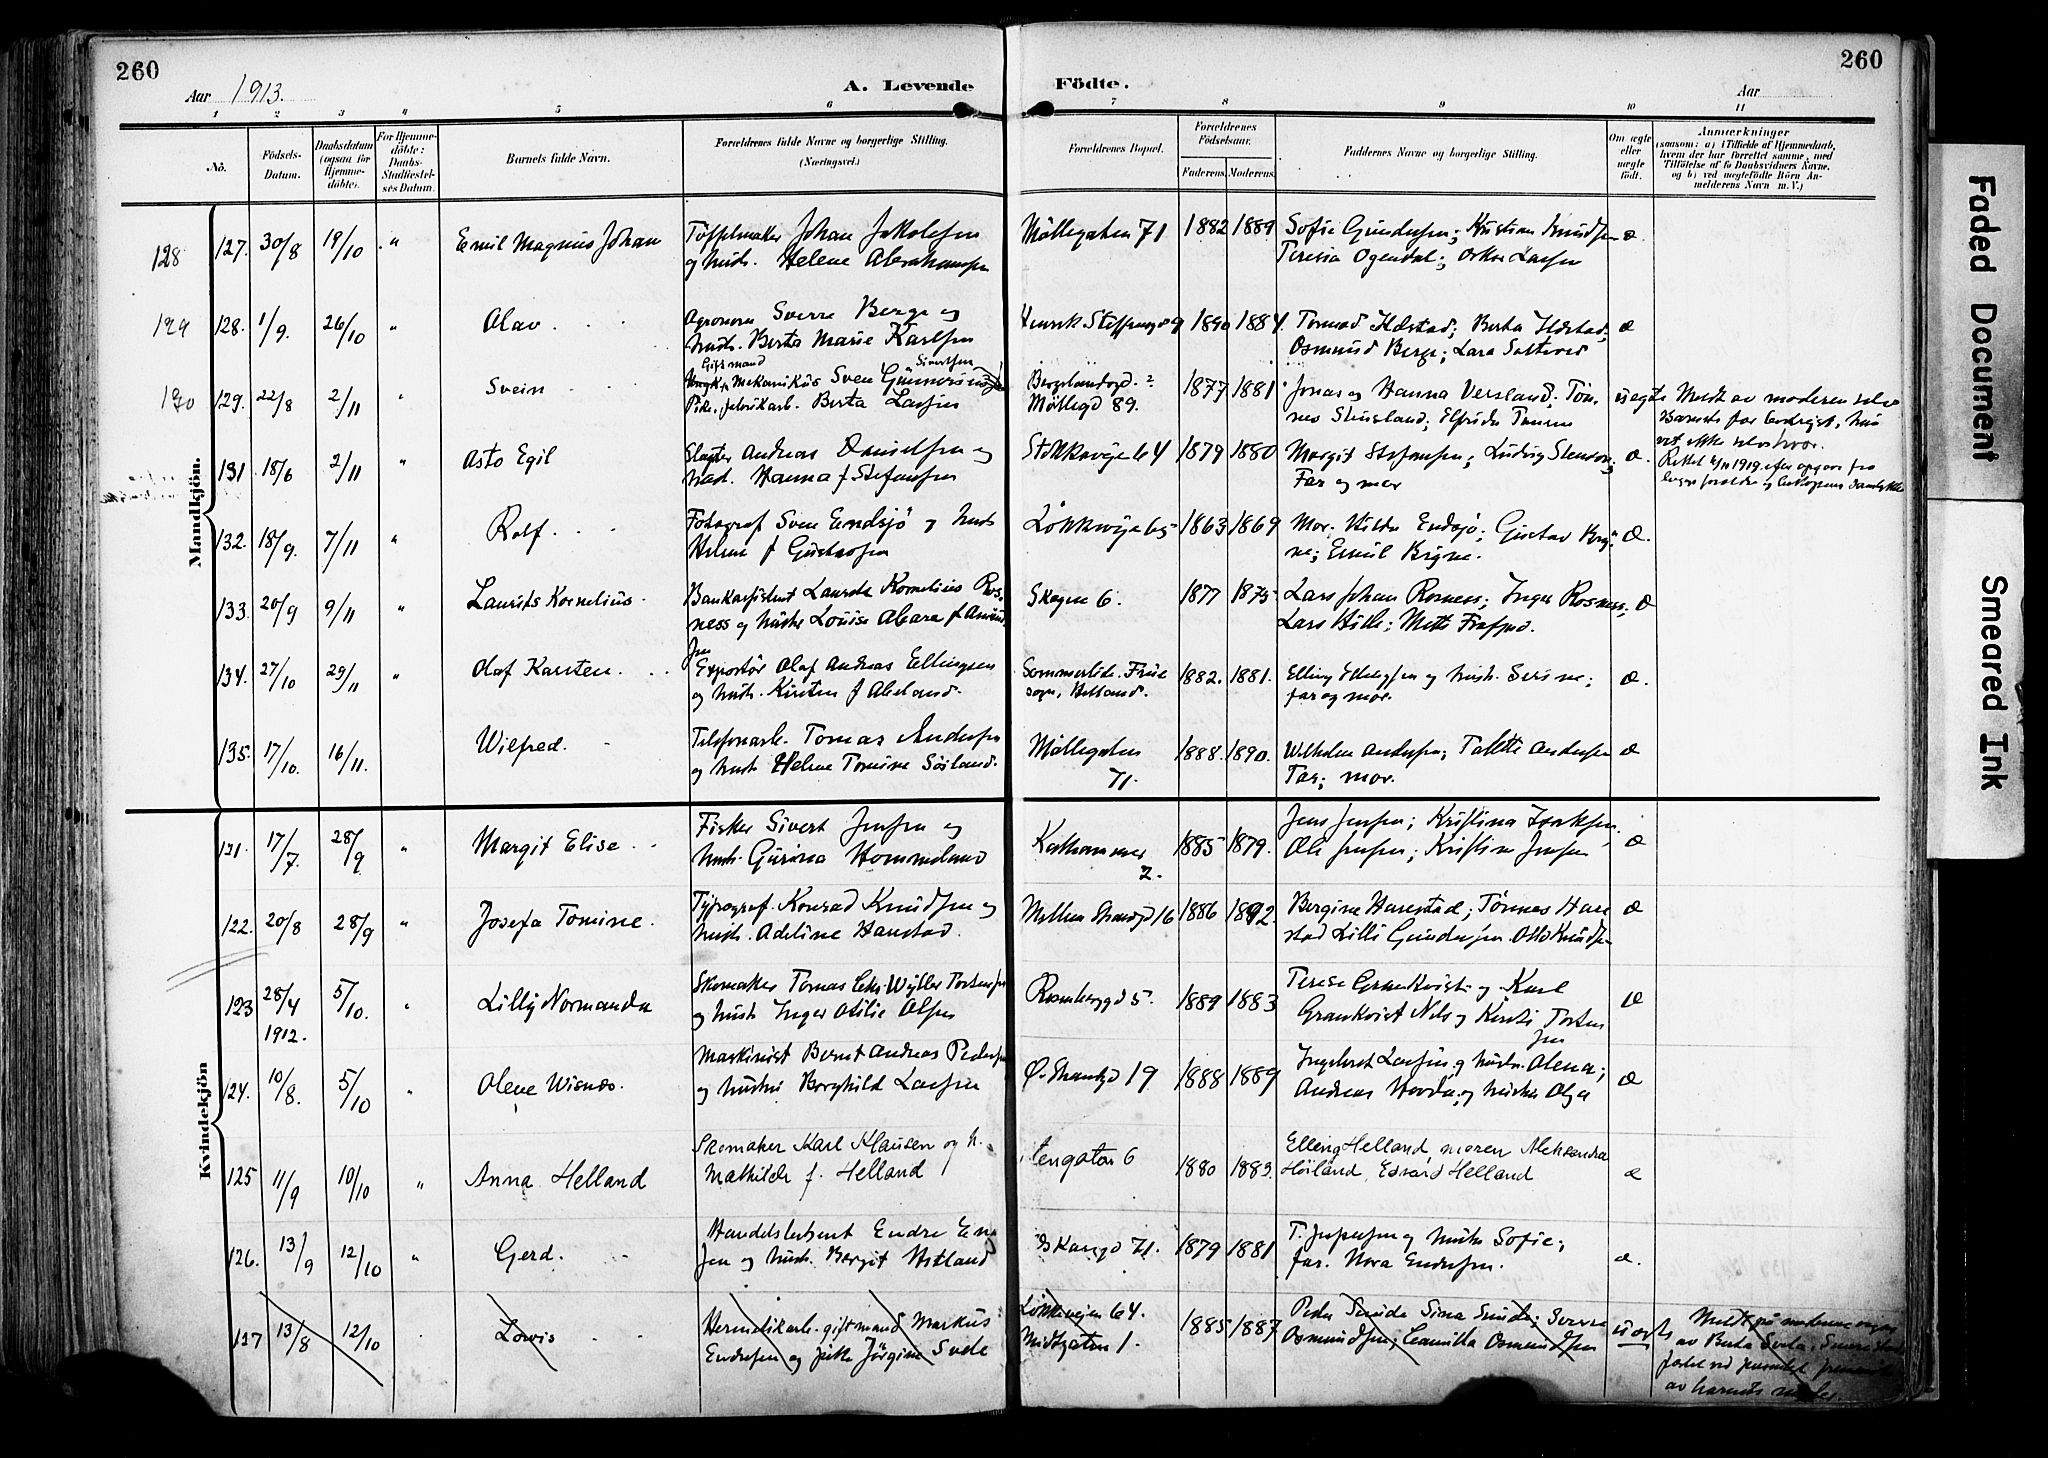 260
260
Aar 1913.
A. Levende
Födte.
Aar
1
2
3
4
5
6
7
8
9
10
11
No.
Födsels-
Datum.
Daabsdatum
(ogsaa for
Hjemme-
döbte).
For Hjemme-
döbte:
Daabs-
Stadfæstel-
ses Datum.
Barnets fulde Navn.
Forældrenes fulde Navne og borgerlige Stilling.
(Næringsvei.)
Forældrenes Bopæl.
Forældrenes
Födselsaar.
Faderens.
Moderens.
Faddernes Navne og borgerlige Stilling.
Om ægte
eller
uægte
födt.
Anmærkninger
(saasom: a) i Tilfælde af Hjemmedaab,
hvem der har forrettet samme, med
Tilföielse af to Daabsvidners Navne,
og b) ved uægtefödte Börn An-
melderens Navn m. V.)
Mandkjön.
128
127. 30/8 19/10 " Emil Magnus Johan
Töffelmaker Johan Jakobsen
og hust. Helene Abrahamsen
Möllegaten 71 1882 1889
Sofie Gundersen; Kristian Knudsen
Teresia Ogendal; Oskar Larsen
æ
129
128. 1/9. 26/10 " Olav
Agronom Sverre Berge og
hust. Berta Marie Karlsen
1890 1884.
Osmund Berge; Lara
æ
130
129. 22/8 2/11 " Svein
Gift mand Sivertsen
Mekanikus Sven
Pike, fabrikarb. Berta Larsen
Möllegd 89.
1877 1881
Jonas og Hanna Versland; Tön-
uegte
Meldt av moderen selv
131 18/6 2/11 " Asto Egil
Slagter Andreas Danielsen og
hust. Hanna f. Stefansen
Stokkaveie 64 1879 1880
Margit Stefansen; Ludvig Stenson;
Far og mor
æ.
132. 18/9. 7/11 " Rolf
Fotograf Sven Endsjö og hust.
Helene f. Gustavsen
Lökkeveie 65 1863 1869
Mor. Hilda Endsjö; Gustav Bry-
ne; Emil Bryne.
æ.
133. 20/9 9/11 " Laurits Kornelius.
Bankassistent Laurits Kornelius Ros-
ness og hustru Louise Abara f. Amund-
sen
Skagen 6. 1877 1875
Lars Johan Rosness; Inger Rosness;
Lars Hille; Mette Frafjord.
æ
134. 27/10 29/11 " Olaf Karsten.
Exportör Olaf Andreas Ellingsen
og hust. Kirsten f. Aaland.
Sommerlide. Frue
sogn, Hetland.
1882. 1881.
Elling Ellingsen og hust. Serine;
far og mor.
æ.
135. 17/10. 16/11. Wilfred.
Telefonarb. Tomas Andersen
og hust. Helene Tomine Söiland.
Möllegaten
71.
1888. 1890.
Wilhelm Andersen; Talette Andersen
Far; mor.
æ
Kvindekjön
121. 17/7. 28/9 " Margit Elise
Fisker Sivert Jensen og
hust. Gurina Hommeland
Kathammer
2.
1885 1879.
Jens Jensen; Kristina Isaksen,
Ole Jensen; Kristine Jensen
æ
122. 20/8 28/9 " Josefa Tomine.
Typograf. Konrad Knudsen og
hust. Adeline Harestad.
Mellem Strandgd 16 1886 1892.
Bergine Harestad; Tönnes Hare
stad Lilli Gundersen. Otto Knudsen
æ
123 28/4 1912. 5/10. " Lilly Normanda
Skomaker Tomas Chr. Wyller Torstensen
og hust. Inger Otilie Olsen
Rosenberggd 5. 1889 1883
Terese Grankvist og Karl
Grankvist Nils og Kirsti Torsten
sen
æ
124. 10/8. 5/10 " Olene Wisnes.
Maskinist Bernt Andreas Pedersen
og hustru Borghild Larsen
Ö. Strandgd 19 1888 1889
Ingebret Larsen og hustr. Olena;
Andreas Hovda og hustru Olga
æ
125 11/9 10/10 " Anna Helland
Skomaker Karl Klausen og h.
Mathilde f. Helland
Engaten 6 1880 1883.
Elling Helland, moren Aleksandra
Höiland, Edvard Helland
æ
126. 13/9 12/10 " Gerd.
Handelsbetjent Endre En
sen og hust. Bergit Vestland
1879 1881
T. Jespersen og hustru Sofie;
far. Nora Endresen.
æ.
127 13/8 12/10 Lovis
Hermetikarb. gift mand Markus
Endresen og pike Jörgine Svele
Lökkeveien 64.
Midtgaten 1.
1885 1887
Peder Sunde Sina Sunde; Sverre
Osmundsen; Camilla Osmundsen
uægte
Meldt på moderens vegne
av Berta
av barnets moder.
Faded Document
Smeared Ink